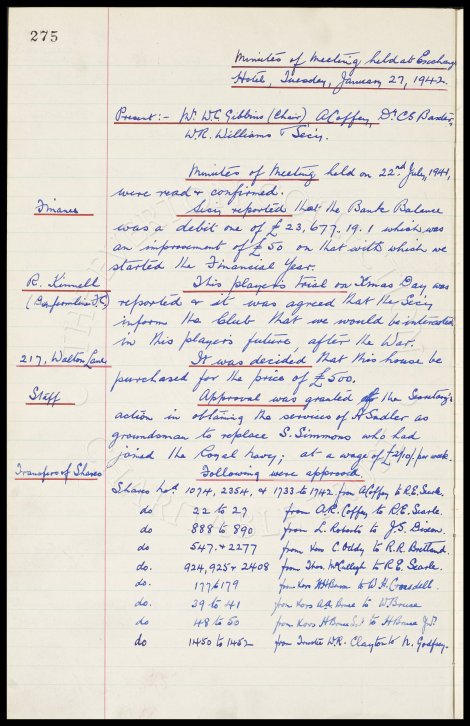 275
Minutes of Meeting held at Exchange
Hotel, Tuesday, January 27, 1942
Present:- Mr W.C. Gibbins (Chair), A Coffey, Dr C.S Baxter,
W.R. Williams & Secy.
Minutes of Meeting held on 22nd July, 1941,
were read & confirmed.
Finance
Secy reported that the Bank Balance
was a debit one of £23,677.19.1 which was
an improvement of £50 on that with which we
started the Financial Year.
R. Kinnell
This players trial on Xmas Day was
(Dunfermline F.C)
reported & it was agreed that the Secy
inform the Club that we would be interested
in this players future, after the War.
217, Walton Lane
It was decided that this house be
purchased for the price of £500.
Staff
Approval was granted of the Secretary's
action in obtaining the services of H Sadler as
groundsman to replace S. Simmons who had
joined the Royal Navy; at a wage of per week.
Transfers of Shares
Following were approved
Shares No. 1074, 2354, & 1733 to 1742 from A Coffey to R.E. Searle.
do 22 to 27 from A.R. Coffey to R.E. Searle.
do 888 to 890 from L. Roberts to J.S. Dixon.
do 547. & 2277 from C. Oddy to R.R. Brettand.
do. 924, 925 & 2408 from Thos. McCullagh to R.E. Searle.
do. 177 & 179 from to W H.
do. 39 to 41 from to W Bowse
do 48 to 50 from to H
do 1450 to 1452 from W.R. Clayton to N. Godfrey.